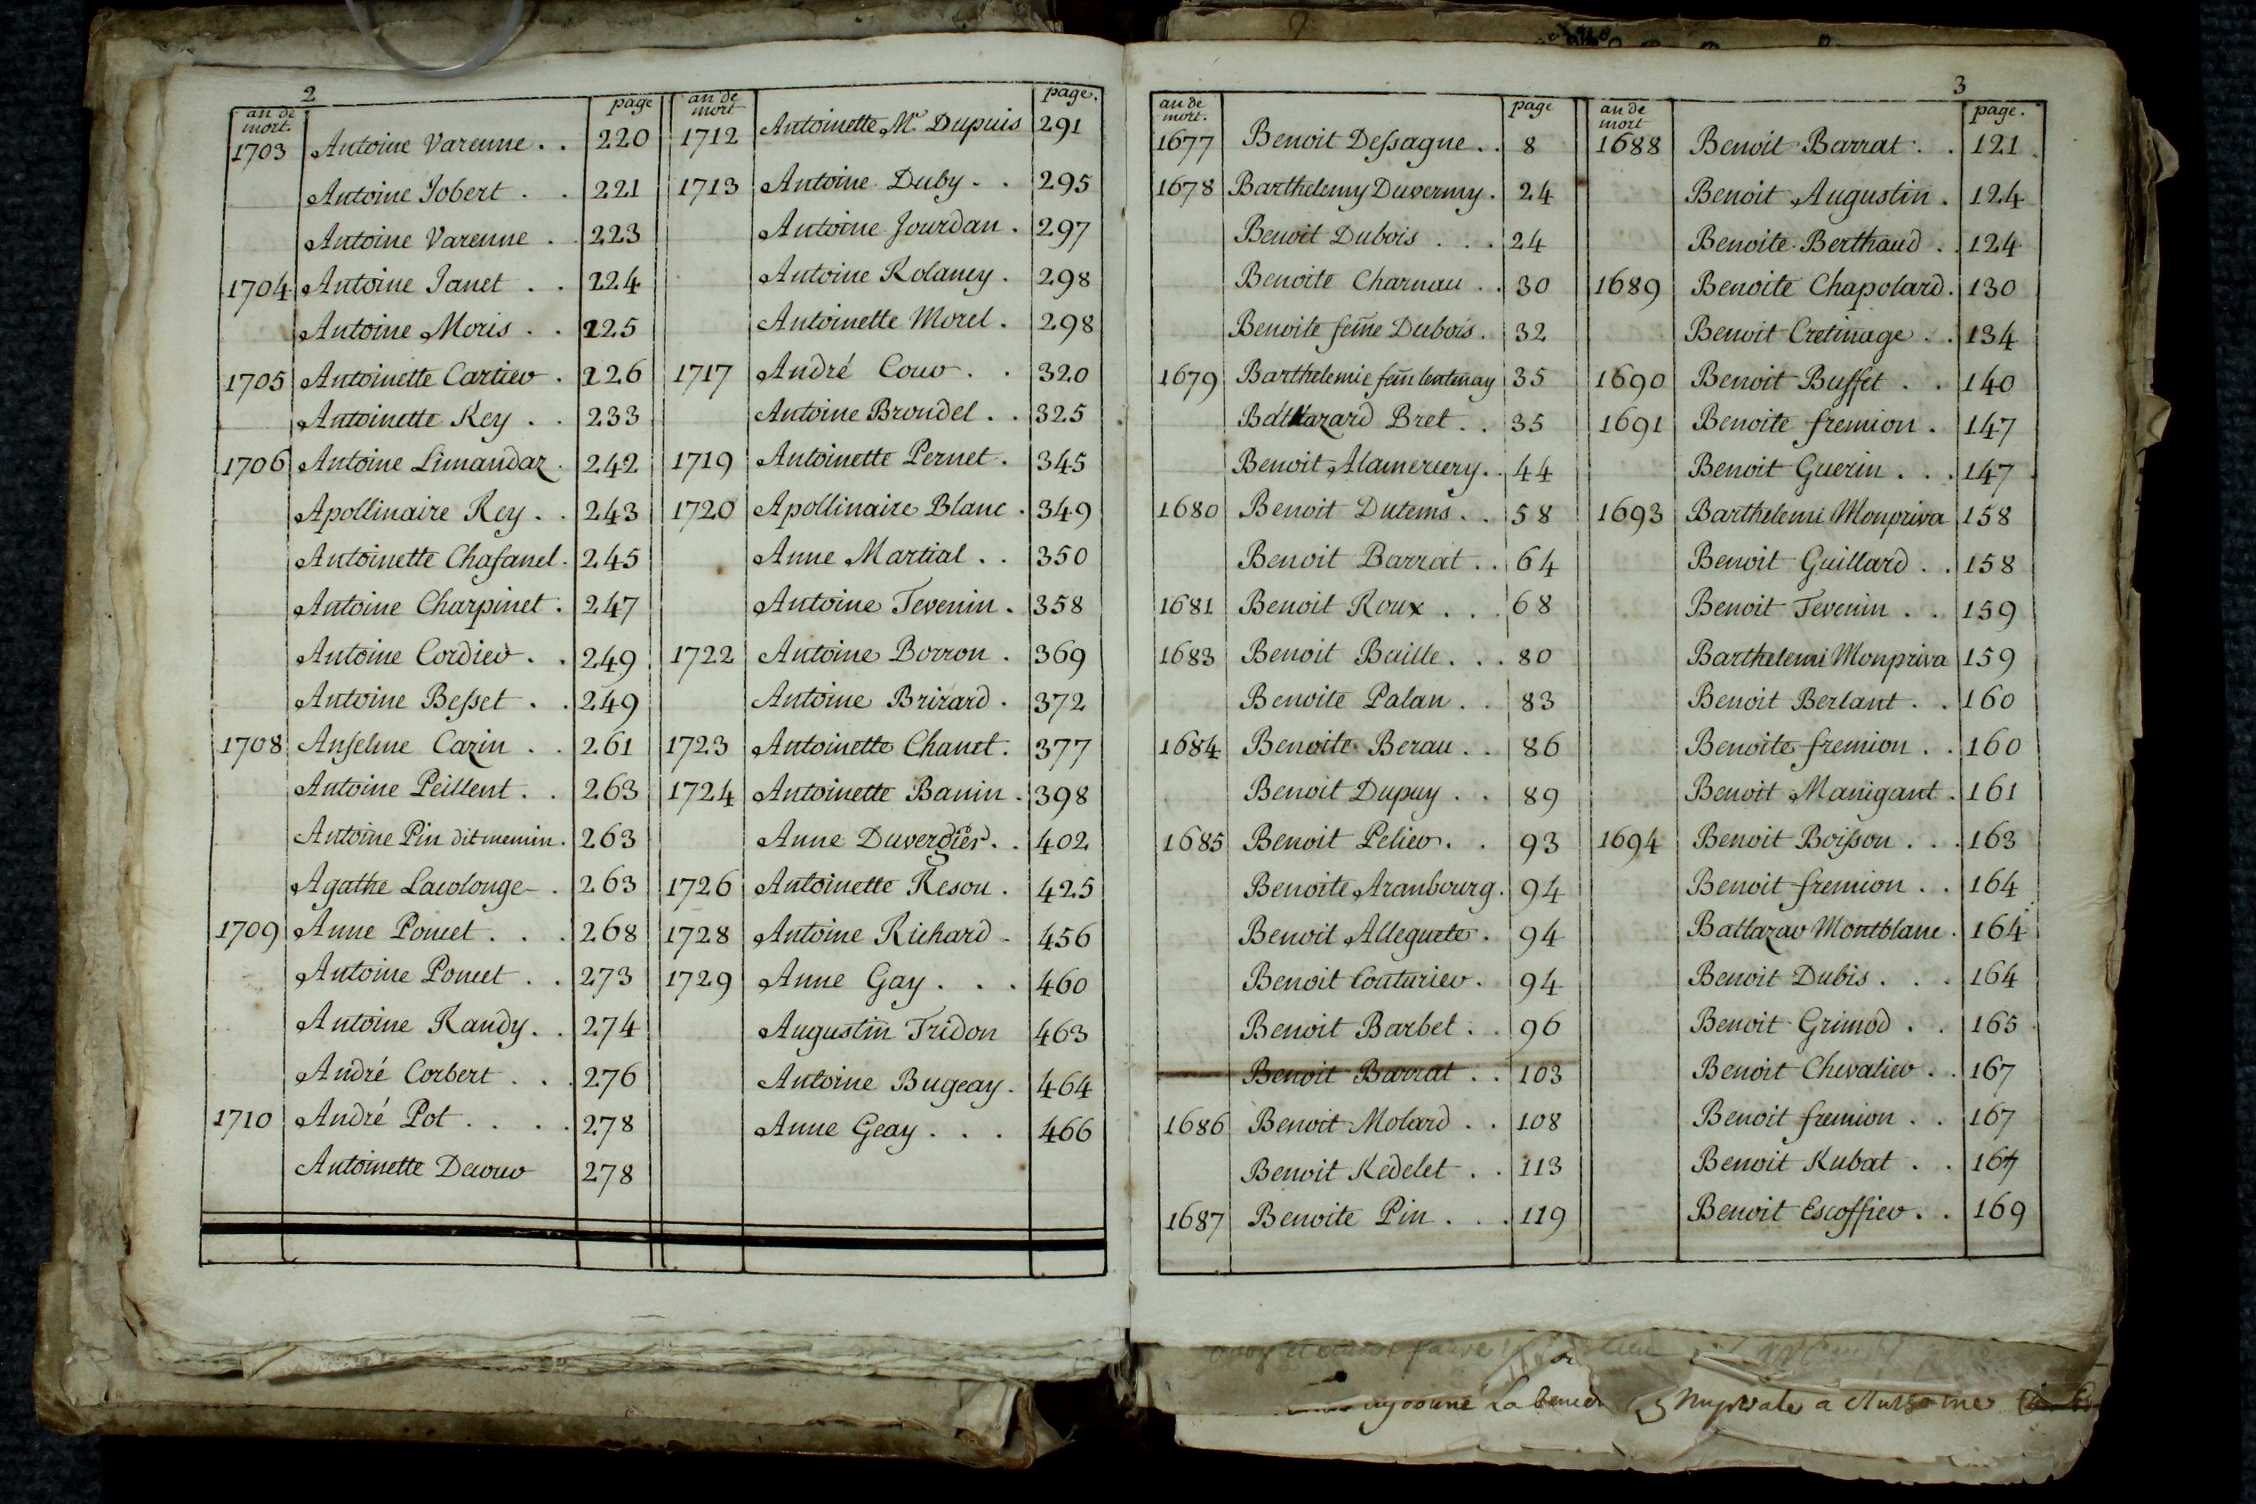 2
an de mort. page
1703 Antoine Varenne . . 220
Antoine Jobert . . 221
Antoine Varenne . . 223
1704 Antoine Janet . . 224
Antoine Moris . . 225
1705 Antoinette Cartier . 226
Antoinette Rey . . 233
1706 Antoine Limandaz . 242
Apollinaire Rey . . 243
Antoinette Chasanel . 245
Antoine Charpinet . 247
Antoine Cordier . . 249
Antoine Besset . . 249
1708 Anselme Cazin . . 261
Antoine Peillent . . 263
Antoine Pin dit memin . 263
Agathe Lacolonge . 263
1709 Anne Poncet . . . 268
Antoine Poncet . . 273
Antoine Randy . . 274
André Corbert . . . 276
1710 André Pot . . . . 278
Antoinette Decour 278
an de mort page.
1712 Antoinette Mc Dupuis 291
1713 Antoine Duby . . 295
Antoine Jourdan . 297
Antoine Rolancy . 298
Antoinette Morel . 298
1717 André Cour . . 320
Antoine Brondel . . 325
1719 Antoinette Pernet . 345
1720 Apollinaire Blanc . 349
Anne Martial . . 350
Antoine Tevenin . 358
1722 Antoine Borron . 369
Antoine Brizard . 372
1723 Antoinette Chanet . 377
1724 Antoinette Banin . 398
Anne Duvergier . . 402
1726 Antoinette Reson . 425
1728 Antoine Richard . 456
1729 Anne Gay . . . 460
Augustin Tridon 463
Antoine Bugeay . 464
Anne Geay . . . 466
3
an de mort. page
1677 Benoit Dessagne . . 8
1678 Barthelemy Duvermy . 24
Benoit Dubois . . . 24
Benoite Charnau . . 30
Benoite feme Dubois . 32
1679 Barthelemie fem lentenay 35
Baltazard Bret . . 35
Benoit Alamercery . . 44
1680 Benoit Dutems . . 58
Benoit Barrat . . 64
1681 Benoit Roux . . . 68
1683 Benoit Baille . . . 80
Benoite Palan . . 83
1684 Benoite Berau . . 86
Benoit Dupuy . . 89
1685 Benoit Pelier . . 93
Benoite Aranbourg . 94
Benoit Alleguete . 94
Benoit Couturier . 94
Benoit Barbet . . 96
Benoit Barrat . . 103
1686 Benoit Molard . . 108
Benoit Redelet . . 113
1687 Benoite Pin . . . 119
an de mort page.
1688 Benoit Barrat . . 121
Benoit Augustin . 124
Benoite Berthaud . . 124
1689 Benoite Chapolard . 130
Benoit Cretinage . . 134
1690 Benoit Buffet . . 140
1691 Benoite fremion . 147
Benoit Guerin . . . 147
1693 Barthelemi Monpriva 158
Benoit Guillard . . 158
Benoit Tevenin . . 159
Barthelemi Monpriva 159
Benoit Berlant . . 160
Benoite fremion . . 160
Benoit Manigant . 161
1694 Benoit Boisson . . . 163
Benoit fremion . . 164
Baltazar Montblanc . 164
Benoit Dubis . . . 164
Benoit Grimod . . 165
Benoit Chevalier . . 167
Benoit fremion . . 167
Benoit Rubat . . 167
Benoit Escoffier . . 169